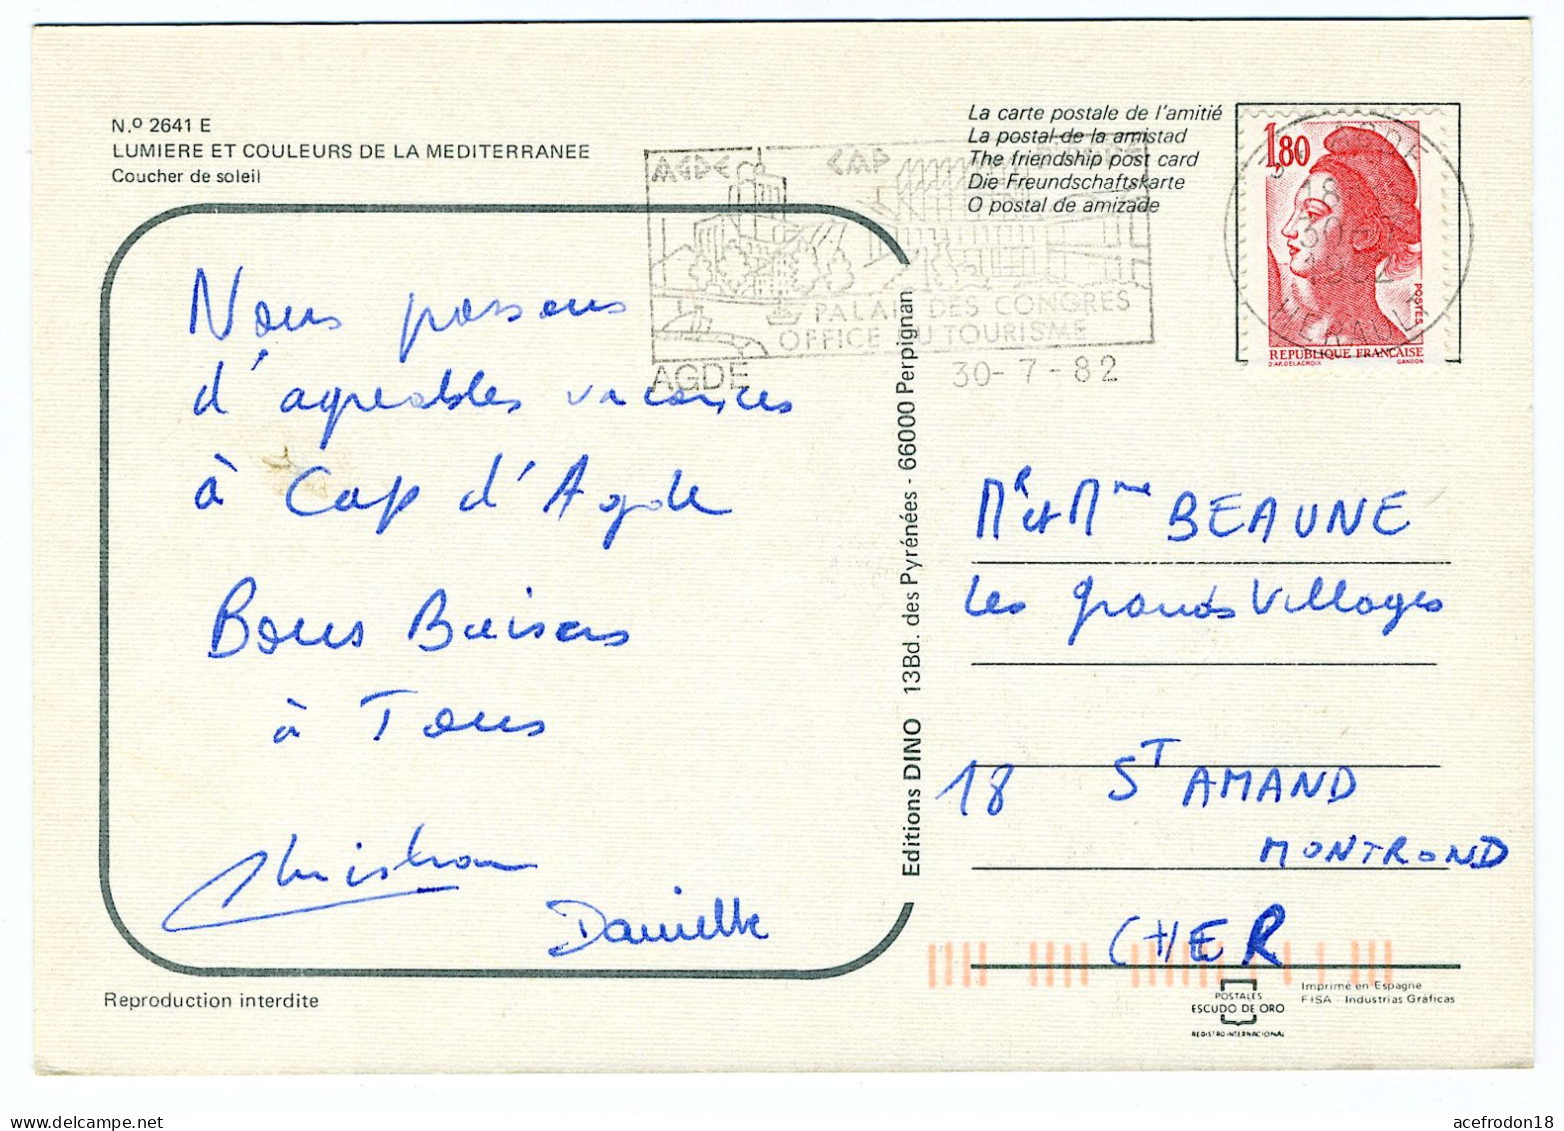 N.º 2641 E
LUMIERE ET COULEURS DE LA MEDITERRANEE
Coucher de soleil
La carte postale de l'amitié
La postal de la amistad
The friendship post card
Die Freundschaftskarte
O postal de amizade
AGDE CAP
PALAIS DES CONGRES
OFFICE DU TOURISME
AGDE 30-7-82
AGDE
18
30-7
1982
HERAULT
1,80
POSTES
REPUBLIQUE FRANÇAISE
D'AP. DELACROIX GANDON
Nous passons
d'agréables vacances
à Cap d'Agde
Bons Baisers
à Tous
Christian
Danielle
Editions DINO 13Bd. des Pyrénées - 66000 Perpignan
Mr et Mme BEAUNE
Les grands Villages
18 ST AMAND
MONTROND
CHER
Reproduction interdite
POSTALES
ESCUDO DE ORO
REGISTRO INTERNACIONAL
Imprimé en Espagne
FISA - Industrias Gráficas
acefrodon18